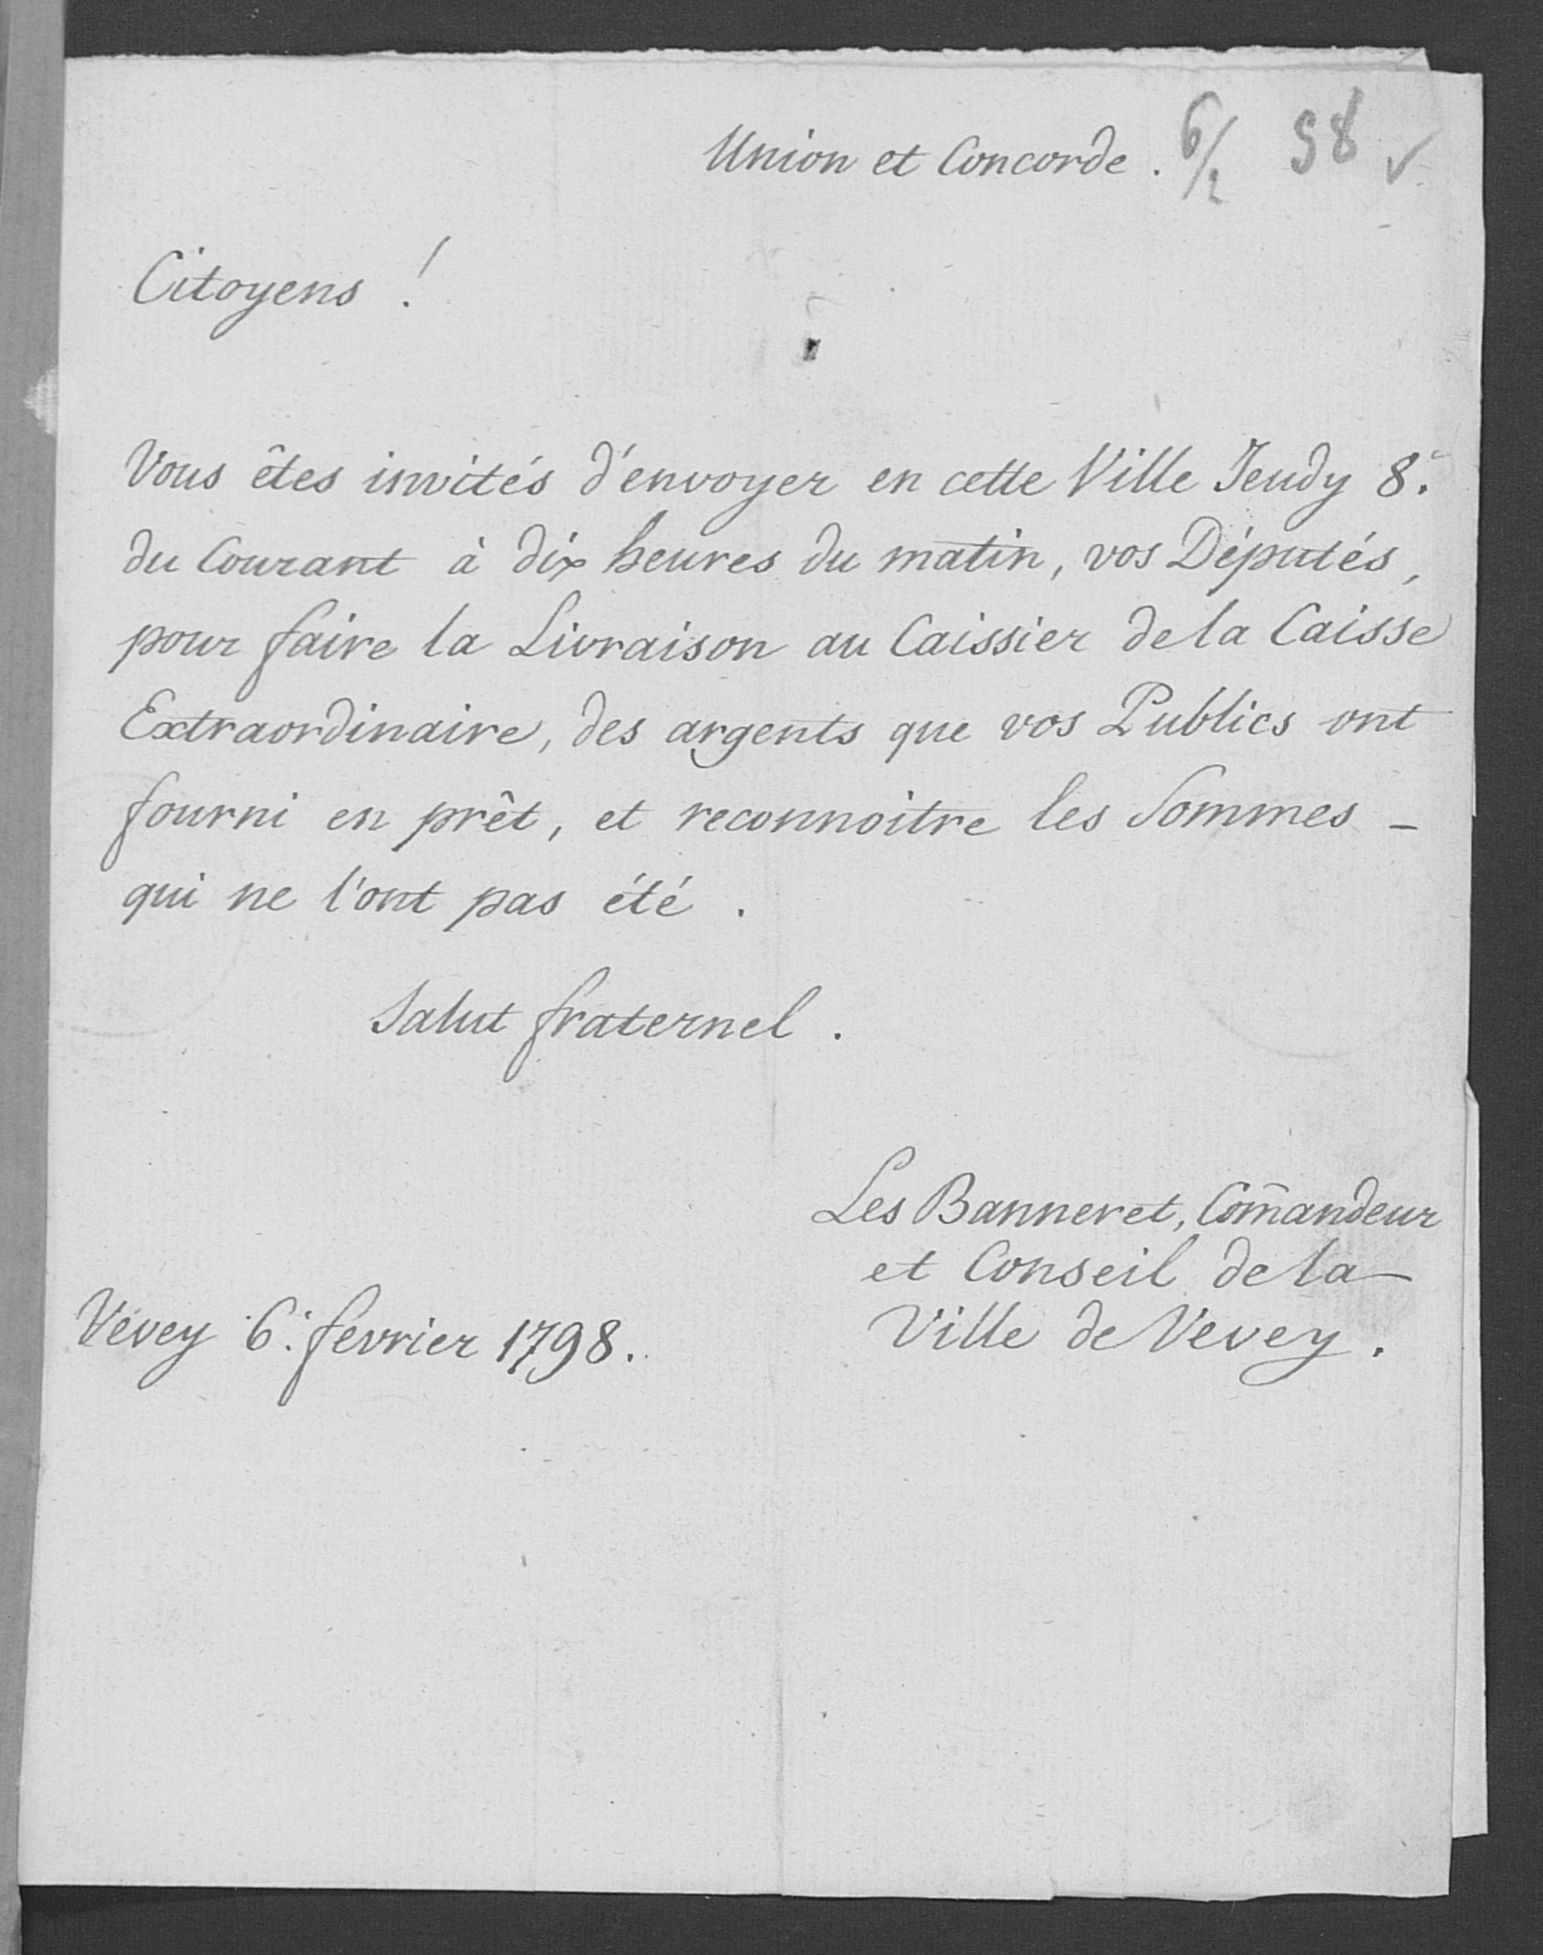 Union et Concorde. 6/2 98
Citoyens !
Vous êtes invités d'envoyer en cette Ville Jeudy 8.
du Courant à dix heures du matin, vos Députés,
pour faire la Livraison au Caissier de la Caisse
Extraordinaire, des argents que vos Publics ont
fourni en prêt, et reconnoitre les Sommes -
qui ne l'ont pas été.
Salut fraternel.
Les Banneret, Com̄andeur
et Conseil de la
Ville de Vevey.
Vévey 6. fevrier 1798.